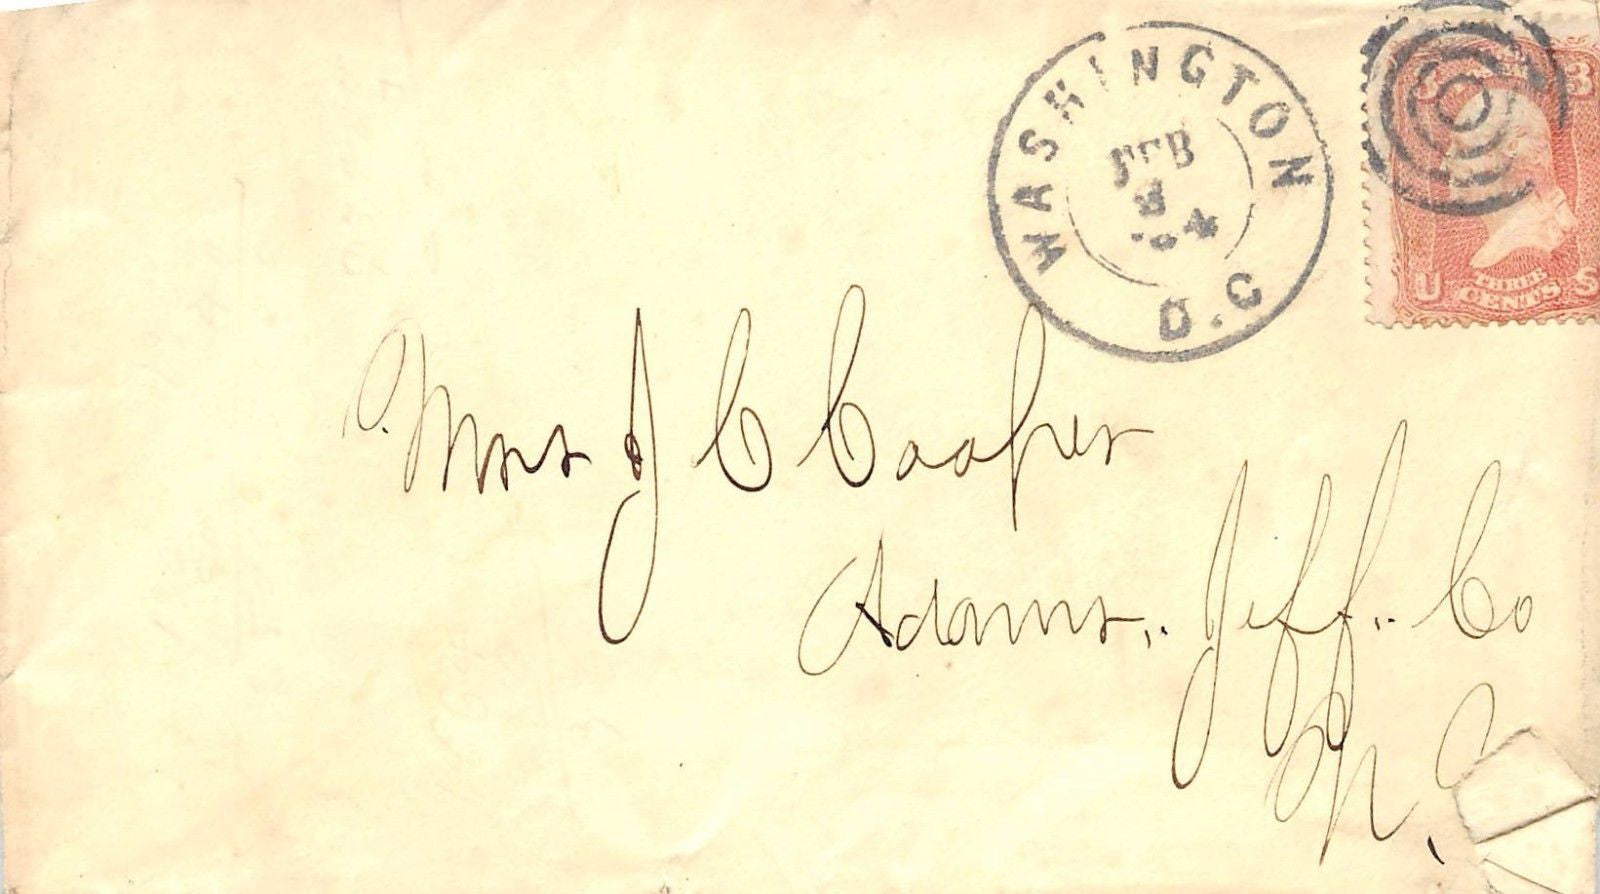 WASHINGTON
D.C
FEB
U 3
U S
THREE
CENTS
Mrs J C Cooper
Adams, Jeff. Co
N.